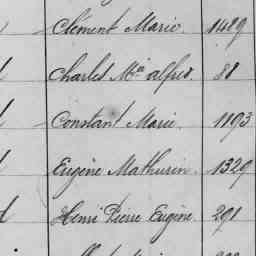 Clément Marie. 1489
Charles Mie alfred. 88
Constant Marie 1193
Eugène Mathurin. 1329
Henri Pierre Eugène 291